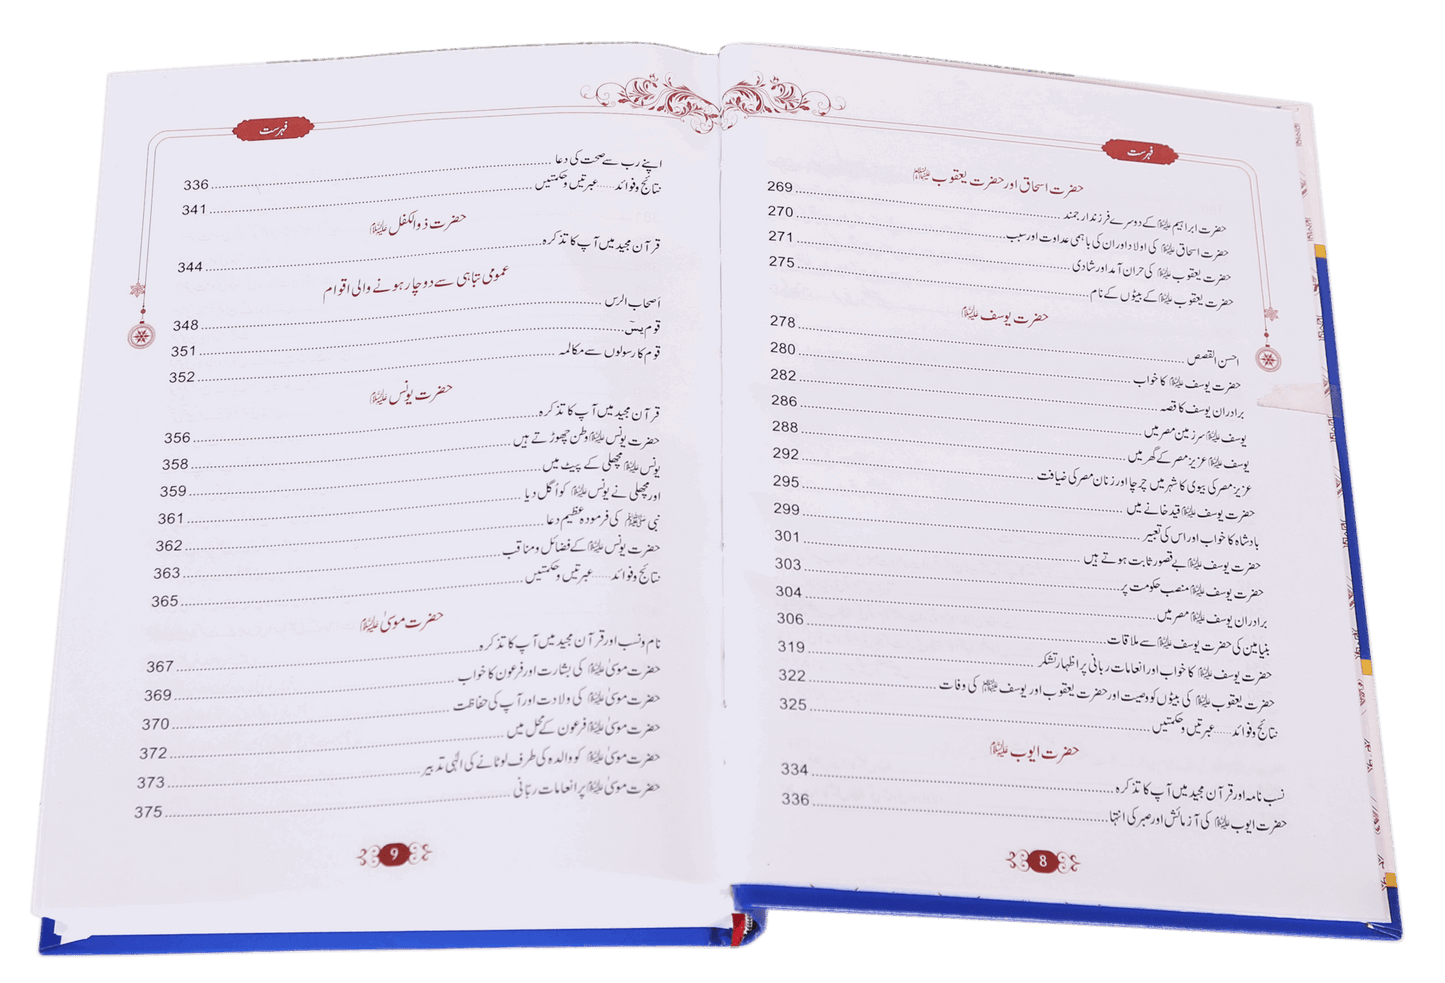 فہرست
حضرت اسحاق اور حضرت یعقوب علیہما السلام
حضرت ابراہیم علیہ السلام کے دوسرے فرزند ارجمند 269
حضرت اسحاق علیہ السلام کی اولاد اور ان کی باہمی عداوت اور سبب 270
حضرت یعقوب علیہ السلام کی حران آمد اور شادی 271
حضرت یعقوب علیہ السلام کے بیٹوں کے نام 275
حضرت یوسف علیہ السلام
احسن القصص 278
حضرت یوسف علیہ السلام کا خواب 280
برادران یوسف کا قصہ 282
یوسف علیہ السلام سرزمین مصر میں 286
یوسف علیہ السلام عزیز مصر کے گھر میں 288
عزیز مصر کی بیوی کا شہر میں چرچا اور زنان مصر کی ضیافت 292
حضرت یوسف علیہ السلام قید خانے میں 295
بادشاہ کا خواب اور اس کی تعبیر 299
حضرت یوسف علیہ السلام بے قصور ثابت ہوتے ہیں 301
حضرت یوسف علیہ السلام منصب حکومت پر 303
برادران یوسف علیہ السلام مصر میں 304
بنیامین کی حضرت یوسف علیہ السلام سے ملاقات 306
حضرت یوسف علیہ السلام کا خواب اور انعامات ربانی پر اظہار تشکر 319
حضرت یعقوب علیہ السلام کی بیٹوں کو وصیت اور حضرت یعقوب اور یوسف علیہما السلام کی وفات 322
نتائج و فوائد ...... عبرتیں و حکمتیں 325
حضرت ایوب علیہ السلام
نسب نامہ اور قرآن مجید میں آپ کا تذکرہ 334
حضرت ایوب علیہ السلام کی آزمائش اور صبر کی انتہا 336
8
فہرست
اپنے رب سے صحت کی دعا 336
نتائج و فوائد ...... عبرتیں و حکمتیں 341
حضرت ذوالکفل علیہ السلام
قرآن مجید میں آپ کا تذکرہ 344
عمومی تباہی سے دوچار ہونے والی اقوام
اصحاب الرس 348
قوم یٰسٓ 351
قوم کا رسولوں سے مکالمہ 352
حضرت یونس علیہ السلام
قرآن مجید میں آپ کا تذکرہ 356
حضرت یونس علیہ السلام وطن چھوڑتے ہیں 358
یونس علیہ السلام مچھلی کے پیٹ میں 359
اور مچھلی نے یونس علیہ السلام کو اُگل دیا 361
نبی ﷺ کی فرمودہ عظیم دعا 362
حضرت یونس علیہ السلام کے فضائل و مناقب 363
نتائج و فوائد ...... عبرتیں و حکمتیں 365
حضرت موسیٰ علیہ السلام
نام و نسب اور قرآن مجید میں آپ کا تذکرہ 367
حضرت موسیٰ علیہ السلام کی بشارت اور فرعون کا خواب 369
حضرت موسیٰ علیہ السلام کی ولادت اور آپ کی حفاظت 370
حضرت موسیٰ علیہ السلام فرعون کے محل میں 372
حضرت موسیٰ علیہ السلام کو والدہ کی طرف لوٹانے کی الٰہی تدبیر 373
حضرت موسیٰ علیہ السلام پر انعامات ربانی 375
9